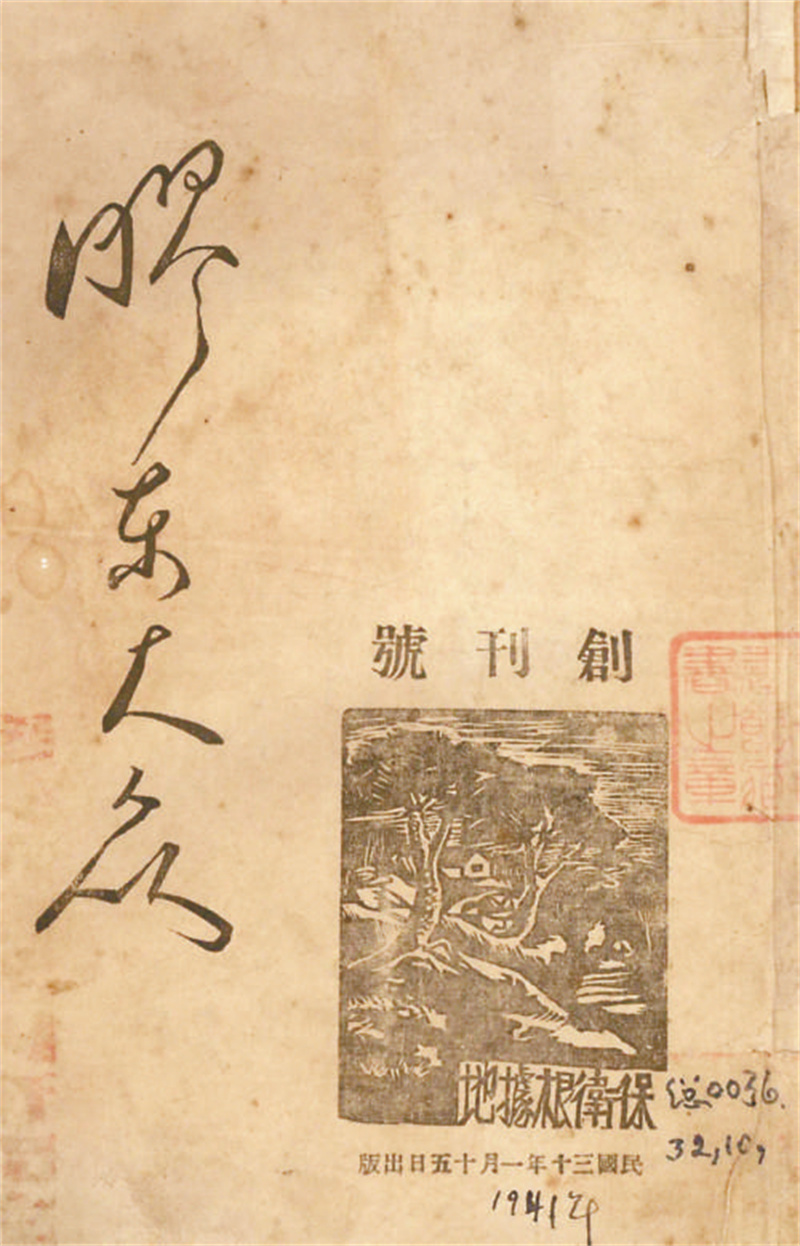 膠东大众
創刊號
保衛根據地
民國三十年一月十五日出版
总0036.
32,10,
1941年